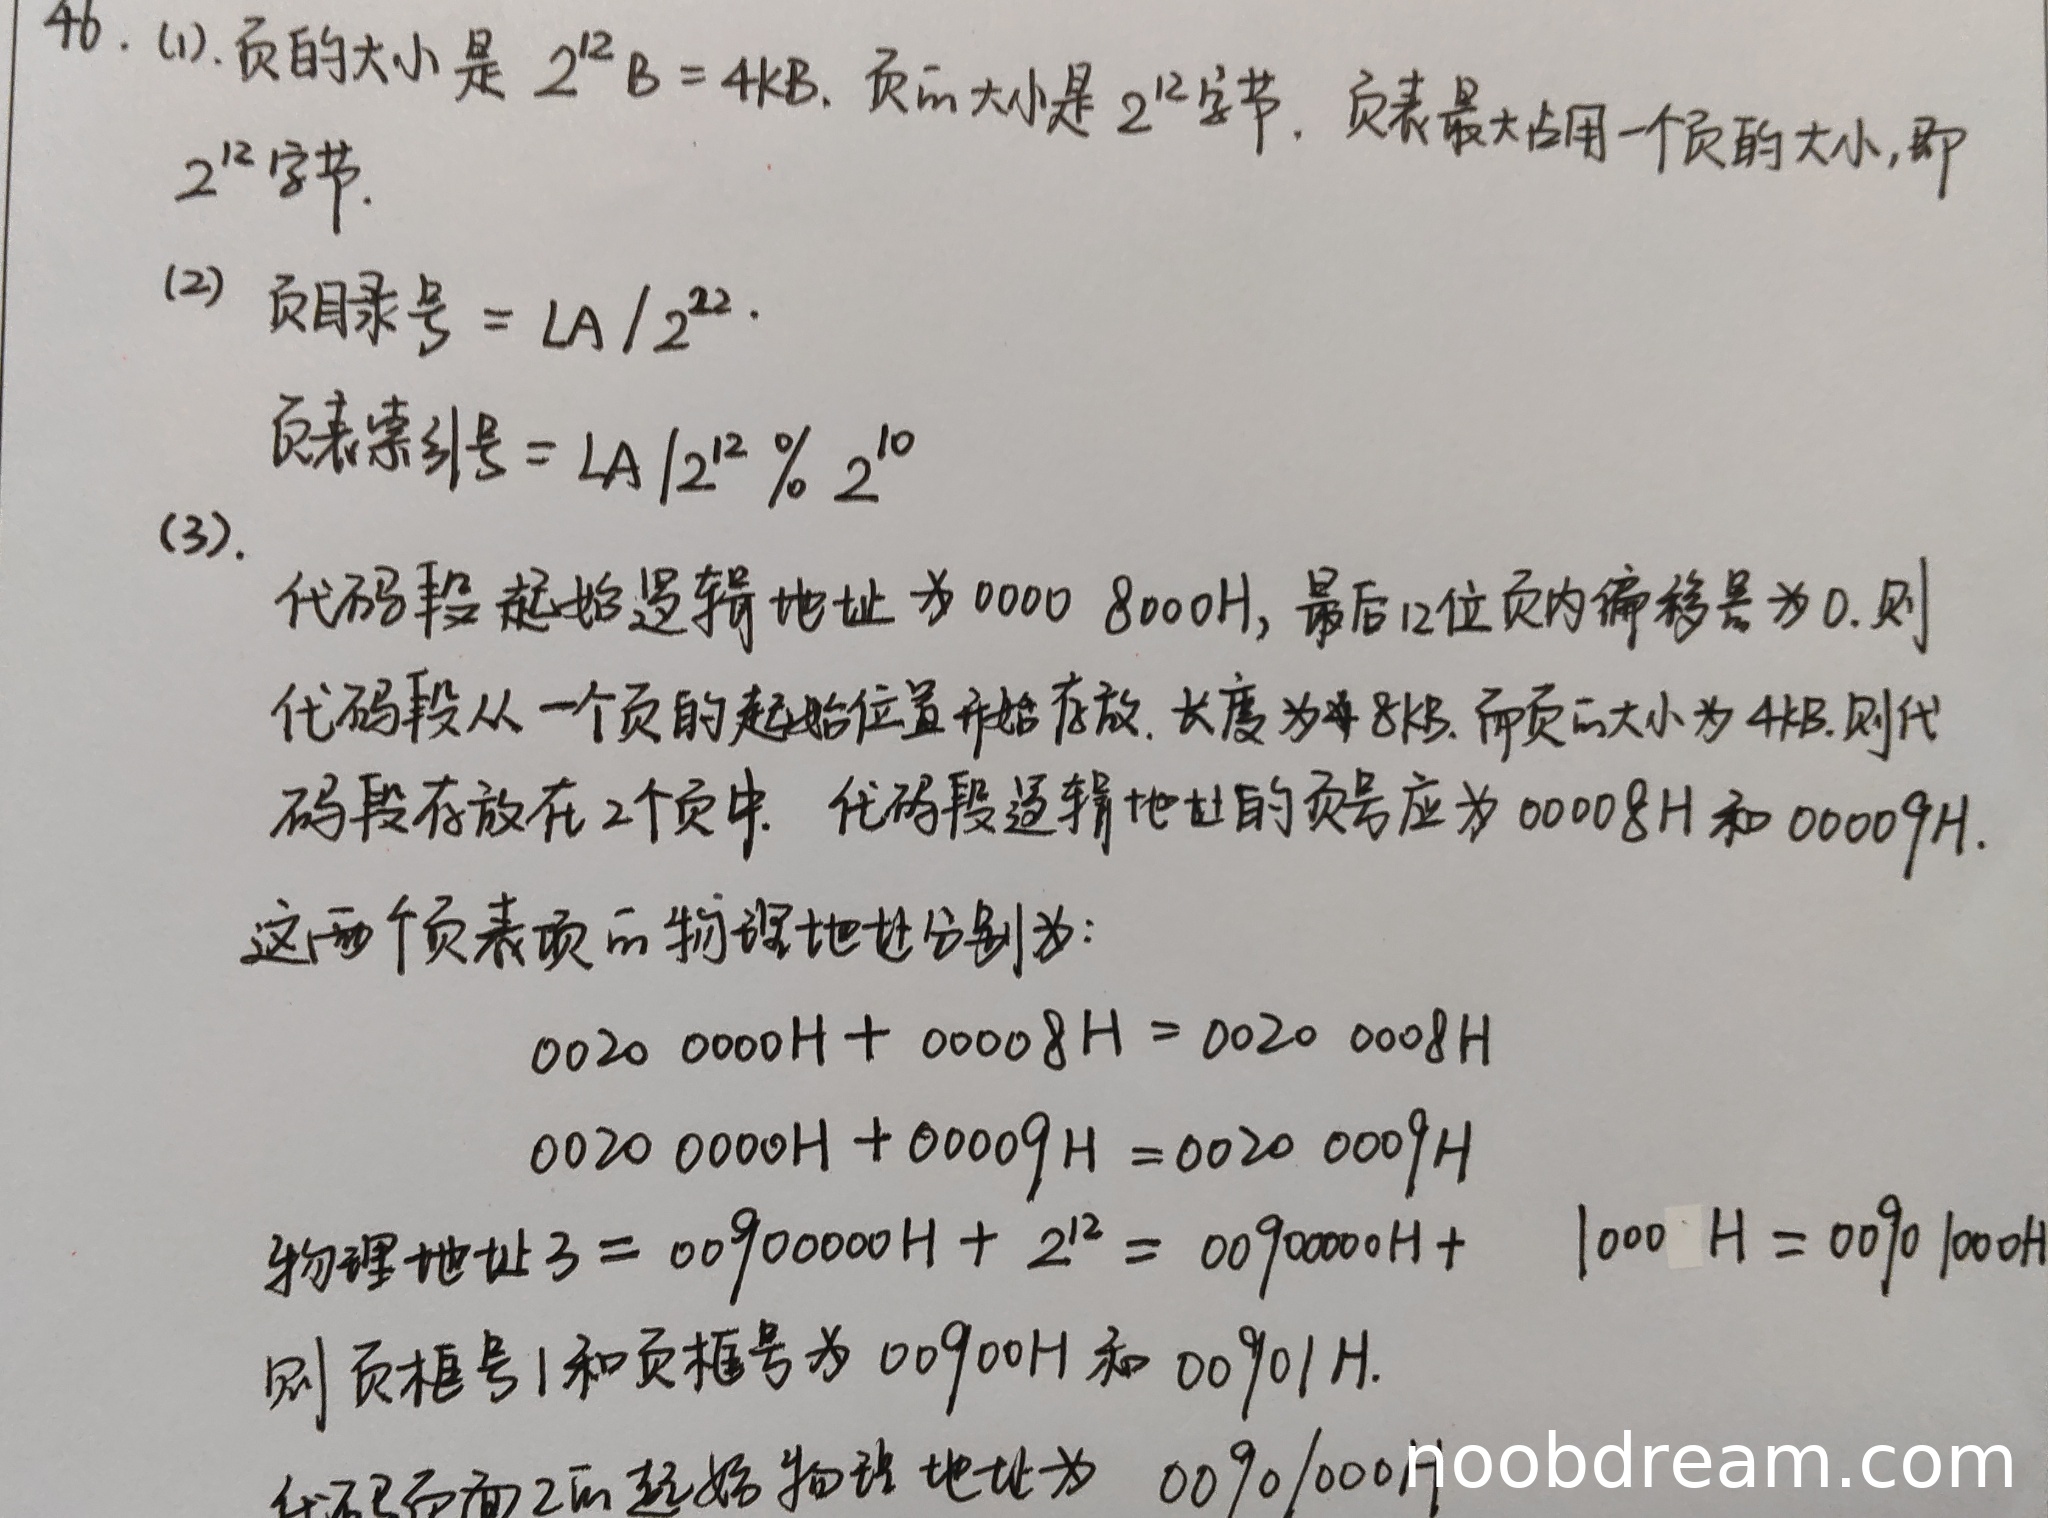 46. (1). 页的大小是 2^12 B = 4KB. 页的大小是 2^12字节. 页表最大占用一个页的大小,即
2^12字节.
(2) 页目录号 = LA / 2^22.
页表索引号 = LA / 2^12 % 2^10
(3).
代码段起始逻辑地址为0000 8000H, 最后12位页内偏移量为0. 则
代码段从一个页的起始位置开始存放. 长度为8KB. 而页的大小为4KB. 则代
码段存放在2个页中. 代码段逻辑地址的页号应为00008H和00009H.
这两个页表项的物理地址分别为:
0020 0000H + 00008H = 0020 0008H
0020 0000H + 00009H = 0020 0009H
物理地址3 = 00900000H + 2^12 = 00900000H + 1000 H = 0090 1000H
则页框号1和页框号为 00900H 和 00901H.
代码页面2的起始物理地址为 00901000H
noobdream.com